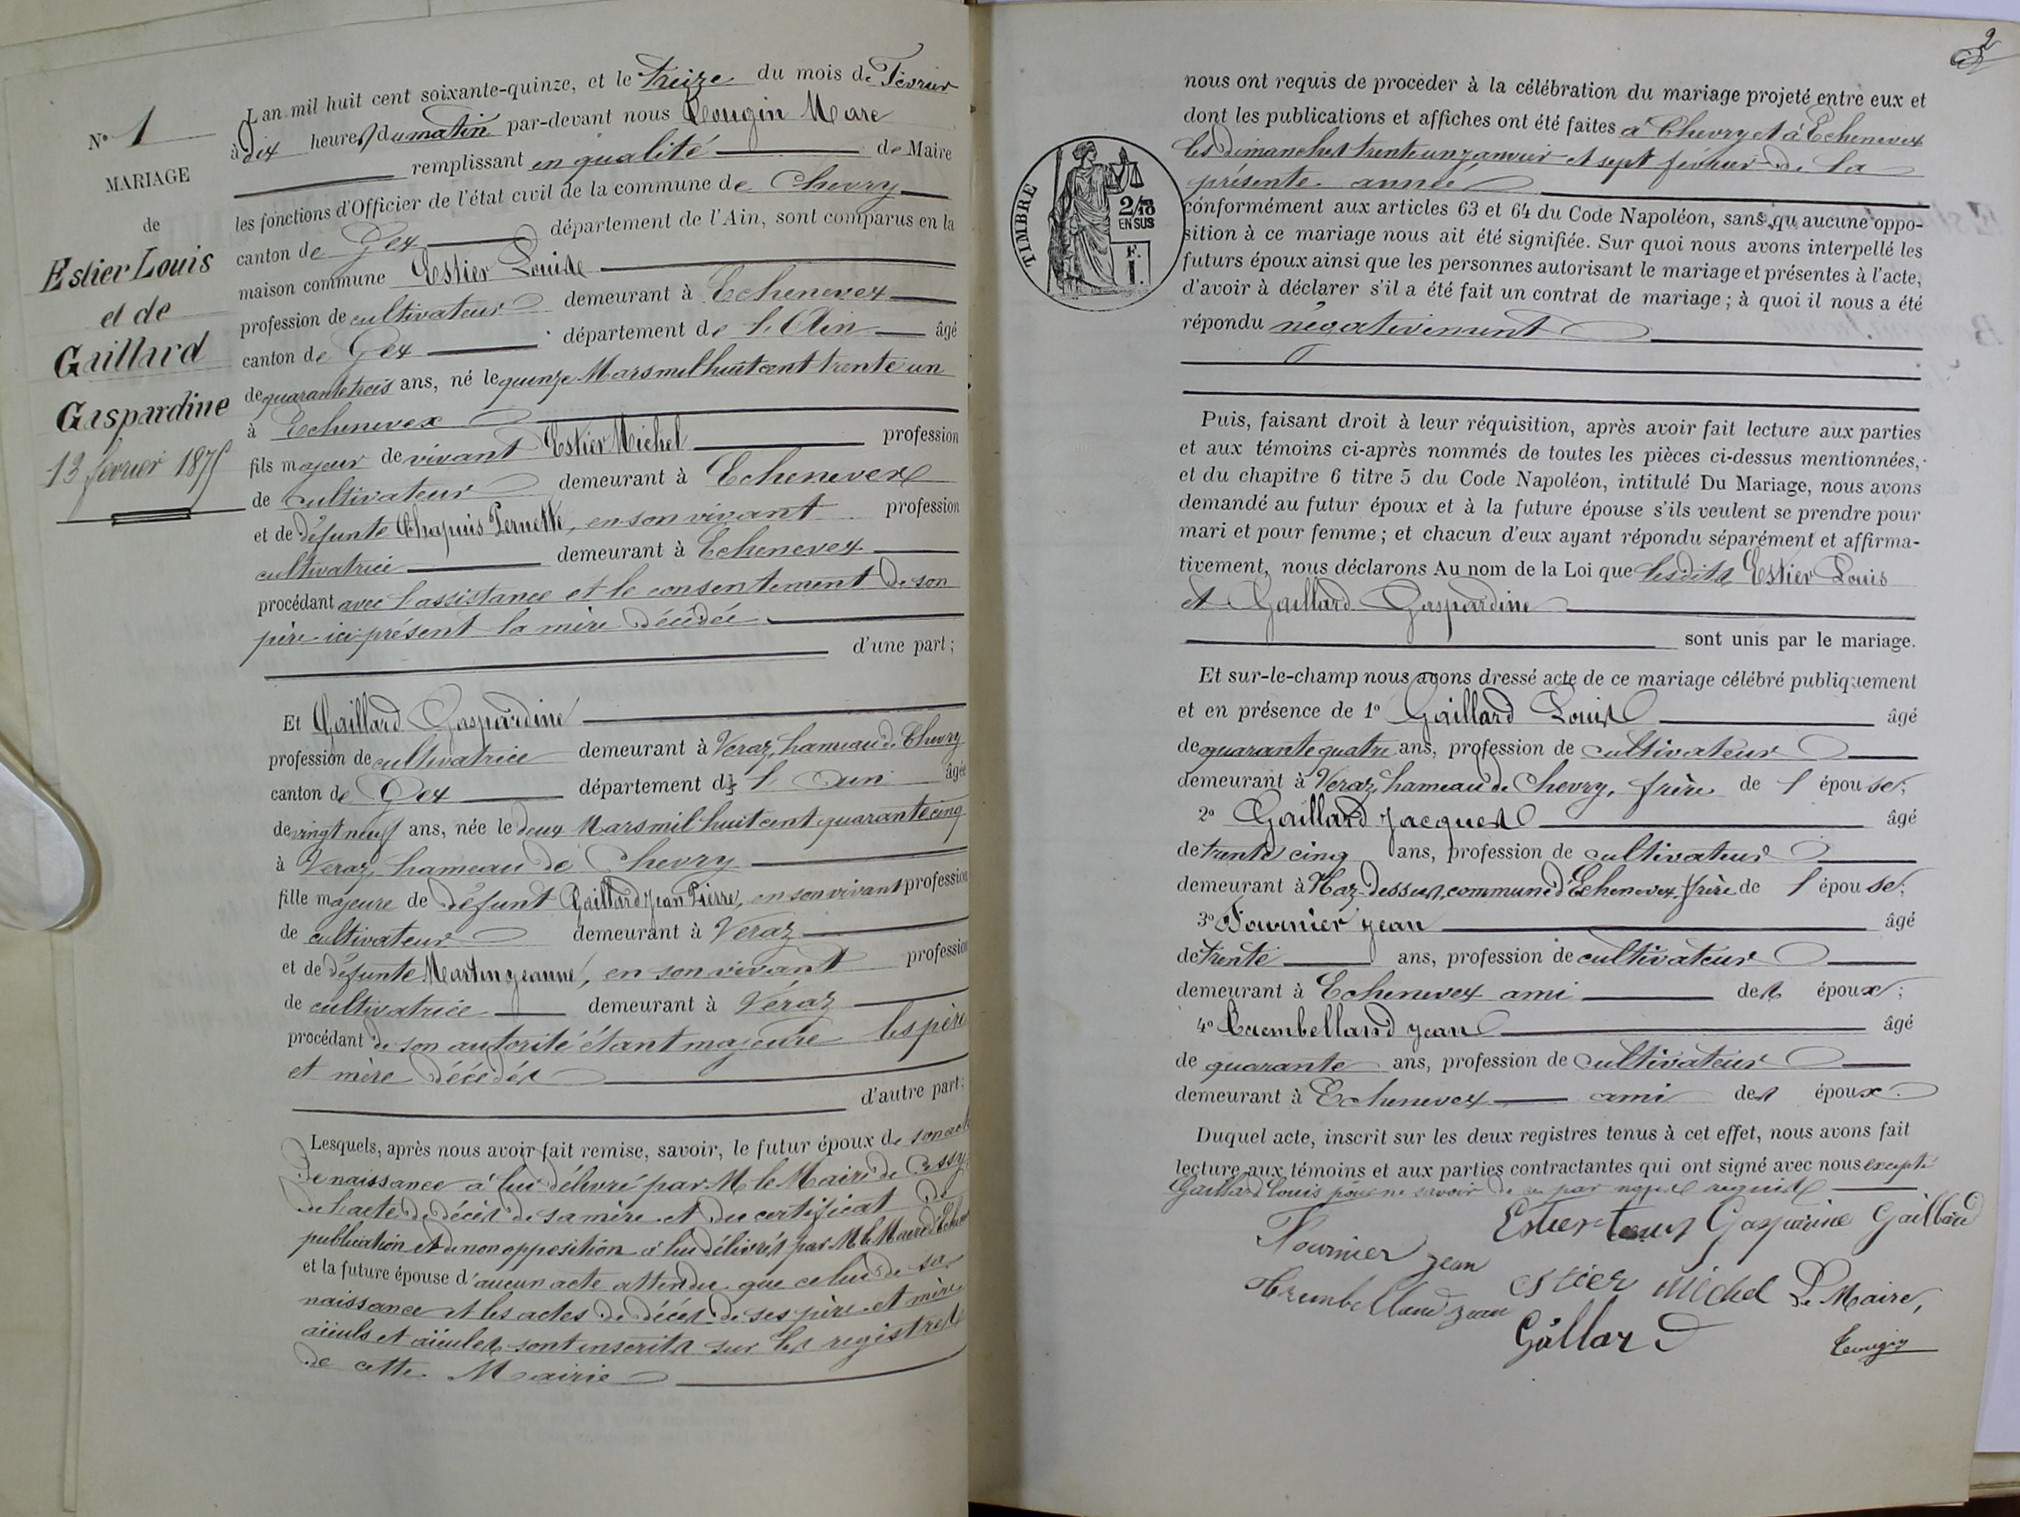 N° 1
MARIAGE
de
Estier Louis
et de
Gaillard
Gaspardine
13 février 1875
L'an mil huit cent soixante-quinze, et le treize du mois de Février
à dix heures du matin par-devant nous Marc
remplissant en qualité de Maire
les fonctions d'Officier de l'état civil de la commune de Chevry
canton de Gex département de l'Ain, sont comparus en la
maison commune Estier Louis
profession de cultivateur demeurant à Echenevex
canton de Gex département de l'Ain âgé
de quarante trois ans, né le quinze Mars mil huit cent trente un
à Echenevex
fils majeur de vivant Estier Michel profession
de cultivateur demeurant à Echenevex
et de défunte Chapuis Pernette, en son vivant profession
cultivatrice demeurant à Echenevex
procédant avec l'assistance et le consentement de son
père ici présent la mère décédée
d'une part;
Et Gaillard Gaspardine
profession de cultivatrice demeurant à Veraz, hameau de Chevry
canton de Gex département de l'Ain âgée
de vingt neuf ans, née le deux Mars mil huit cent quarante cinq
à Veraz hameau de Chevry
fille majeure de défunt Gaillard Jean Pierre, en son vivant profession
de cultivateur demeurant à Veraz
et de défunte Martin Jeanne, en son vivant profession
de cultivatrice demeurant à Véraz
procédant de son autorité étant majeure les père
et mère décédés
d'autre part;
Lesquels, après nous avoir fait remise, savoir, le futur époux de son acte
de naissance à lui délivré par M le Maire de Cessy
de l'acte de décès de sa mère et du certificat de
publication et de non opposition à lui délivrés par M le Maire d'Echenevex
et la future épouse d'aucun acte attendu que celui de sa
naissance et les actes de décès de ses père et mère
aïeuls et aïeules sont inscrits sur les registres
de cette Mairie
2
TIMBRE
2/10
EN SUS
F.
1.
nous ont requis de procéder à la célébration du mariage projeté entre eux et
dont les publications et affiches ont été faites à Chevry et à Echenevex
les dimanches trente un janvier et sept février de la
présente année
conformément aux articles 63 et 64 du Code Napoléon, sans qu'aucune oppo-
sition à ce mariage nous ait été signifiée. Sur quoi nous avons interpellé les
futurs époux ainsi que les personnes autorisant le mariage et présentes à l'acte,
d'avoir à déclarer s'il a été fait un contrat de mariage; à quoi il nous a été
répondu négativement
Puis, faisant droit à leur réquisition, après avoir fait lecture aux parties
et aux témoins ci-après nommés de toutes les pièces ci-dessus mentionnées,
et du chapitre 6 titre 5 du Code Napoléon, intitulé Du Mariage, nous avons
demandé au futur époux et à la future épouse s'ils veulent se prendre pour
mari et pour femme; et chacun d'eux ayant répondu séparément et affirma-
tivement, nous déclarons Au nom de la Loi que lesdits Estier Louis
et Gaillard Gaspardine
sont unis par le mariage.
Et sur-le-champ nous avons dressé acte de ce mariage célébré publiquement
et en présence de 1° Gaillard Louis âgé
de quarante quatre ans, profession de cultivateur
demeurant à Veraz, hameau de Chevry, frère de l'épouse;
2° Gaillard Jacques âgé
de trente cinq ans, profession de cultivateur
demeurant à Naz-dessus, commune d'Echenevex frère de l'épouse;
3° Fournier Jean âgé
de trente ans, profession de cultivateur
demeurant à Echenevex ami des époux;
4° Jean âgé
de quarante ans, profession de cultivateur
demeurant à Echenevex ami des époux.
Duquel acte, inscrit sur les deux registres tenus à cet effet, nous avons fait
lecture aux témoins et aux parties contractantes qui ont signé avec nous excepté
Gaillard Louis pour ne savoir de ce par nous requis
Estier Louis Gaspardine Gaillard
Fournier Jean
Estier Michel Le Maire,
Jean
Gallard